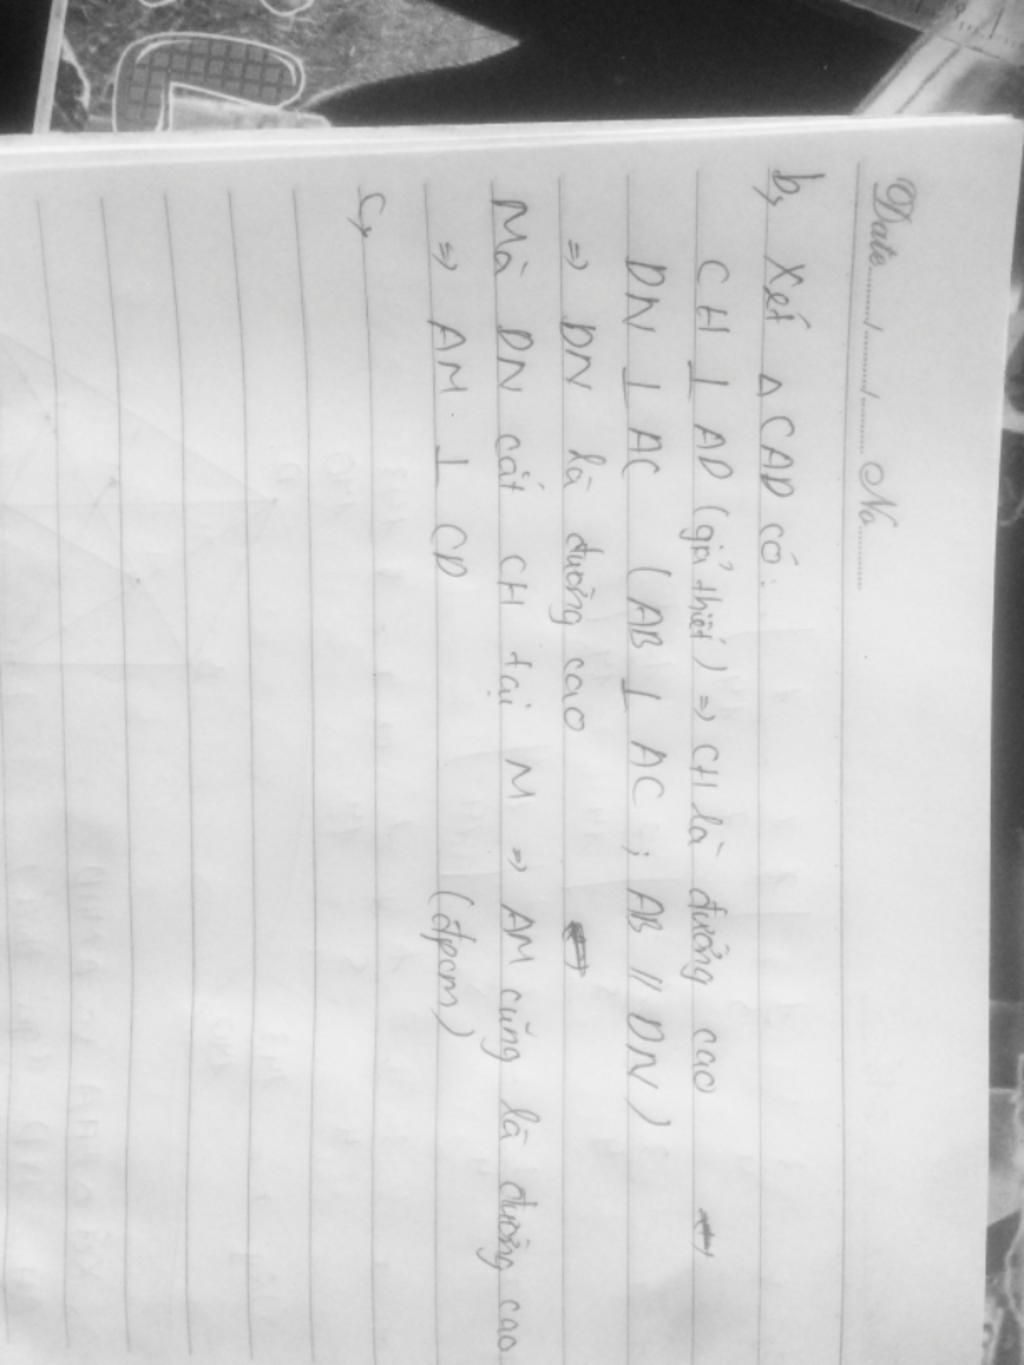 Date......../......../........ No............
b, Xét Δ CAD có:
CH ⊥ AD (giả thiết) => CH là đường cao
DN ⊥ AC (AB ⊥ AC ; AB // DN)
=> DN là đường cao
Mà DN cắt CH tại M => AM cũng là đường cao
=> AM ⊥ CD (đpcm)
c,